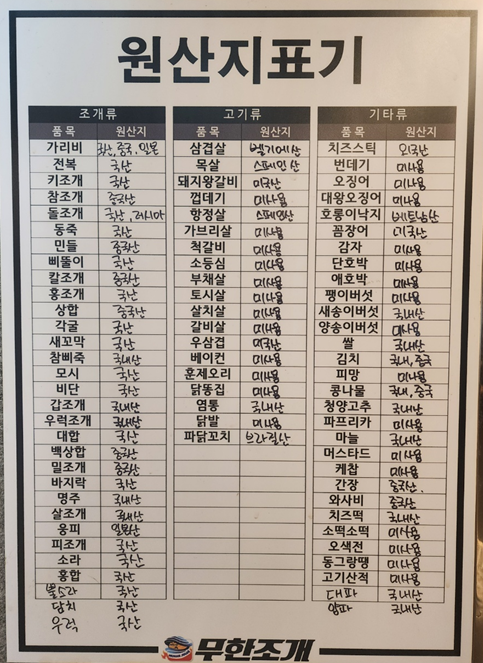 원산지표기
조개류 고기류 기타류
품목 원산지 품목 원산지 품목 원산지
가리비 국산,중국,일본 삼겹살 벨기에산 치즈스틱 외국산
전복 국산 목살 스페인산 번데기 미사용
키조개 국산 돼지왕갈비 미국산 오징어 미사용
참조개 중국산 껍데기 미사용 대왕오징어 미사용
돌조개 국산,러시아 항정살 스페인산 호롱이낙지 베트남산
동죽 국산 가브리살 미사용 꼼장어 미국산
민들 중국산 척갈비 미사용 감자 미사용
삐뚤이 국산 소등심 미사용 단호박 미사용
칼조개 중국산 부채살 미사용 애호박 미사용
홍조개 국산 토시살 미사용 팽이버섯 미사용
상합 중국산 살치살 미사용 새송이버섯 국내산
각굴 국산 갈비살 미사용 양송이버섯 미사용
새꼬막 국산 우삼겹 미국산 쌀 국내산
참삐죽 국내산 베이컨 미사용 김치 국내,중국
모시 국산 훈제오리 미사용 피망 미사용
비단 국산 닭똥집 미사용 콩나물 국내,중국
갑조개 국내산 염통 국내산 청양고추 국내산
우럭조개 국내산 닭발 미사용 파프리카 미사용
대합 국산 파닭꼬치 브라질산 마늘 국내산
백상합 중국산 머스타드 미사용
밀조개 중국산 케찹 미사용
바지락 국산 간장 중국산.
명주 국내산 와사비 중국산
살조개 국내산 치즈떡 국내산
웅피 일본산 소떡소떡 미사용
피조개 국산 오색전 미사용
소라 국산 동그랑땡 미사용
홍합 국산 고기산적 미사용
뿔소라 국산 대파 국내산
담치 국산 양파 국내산
우럭 국산
무한조개